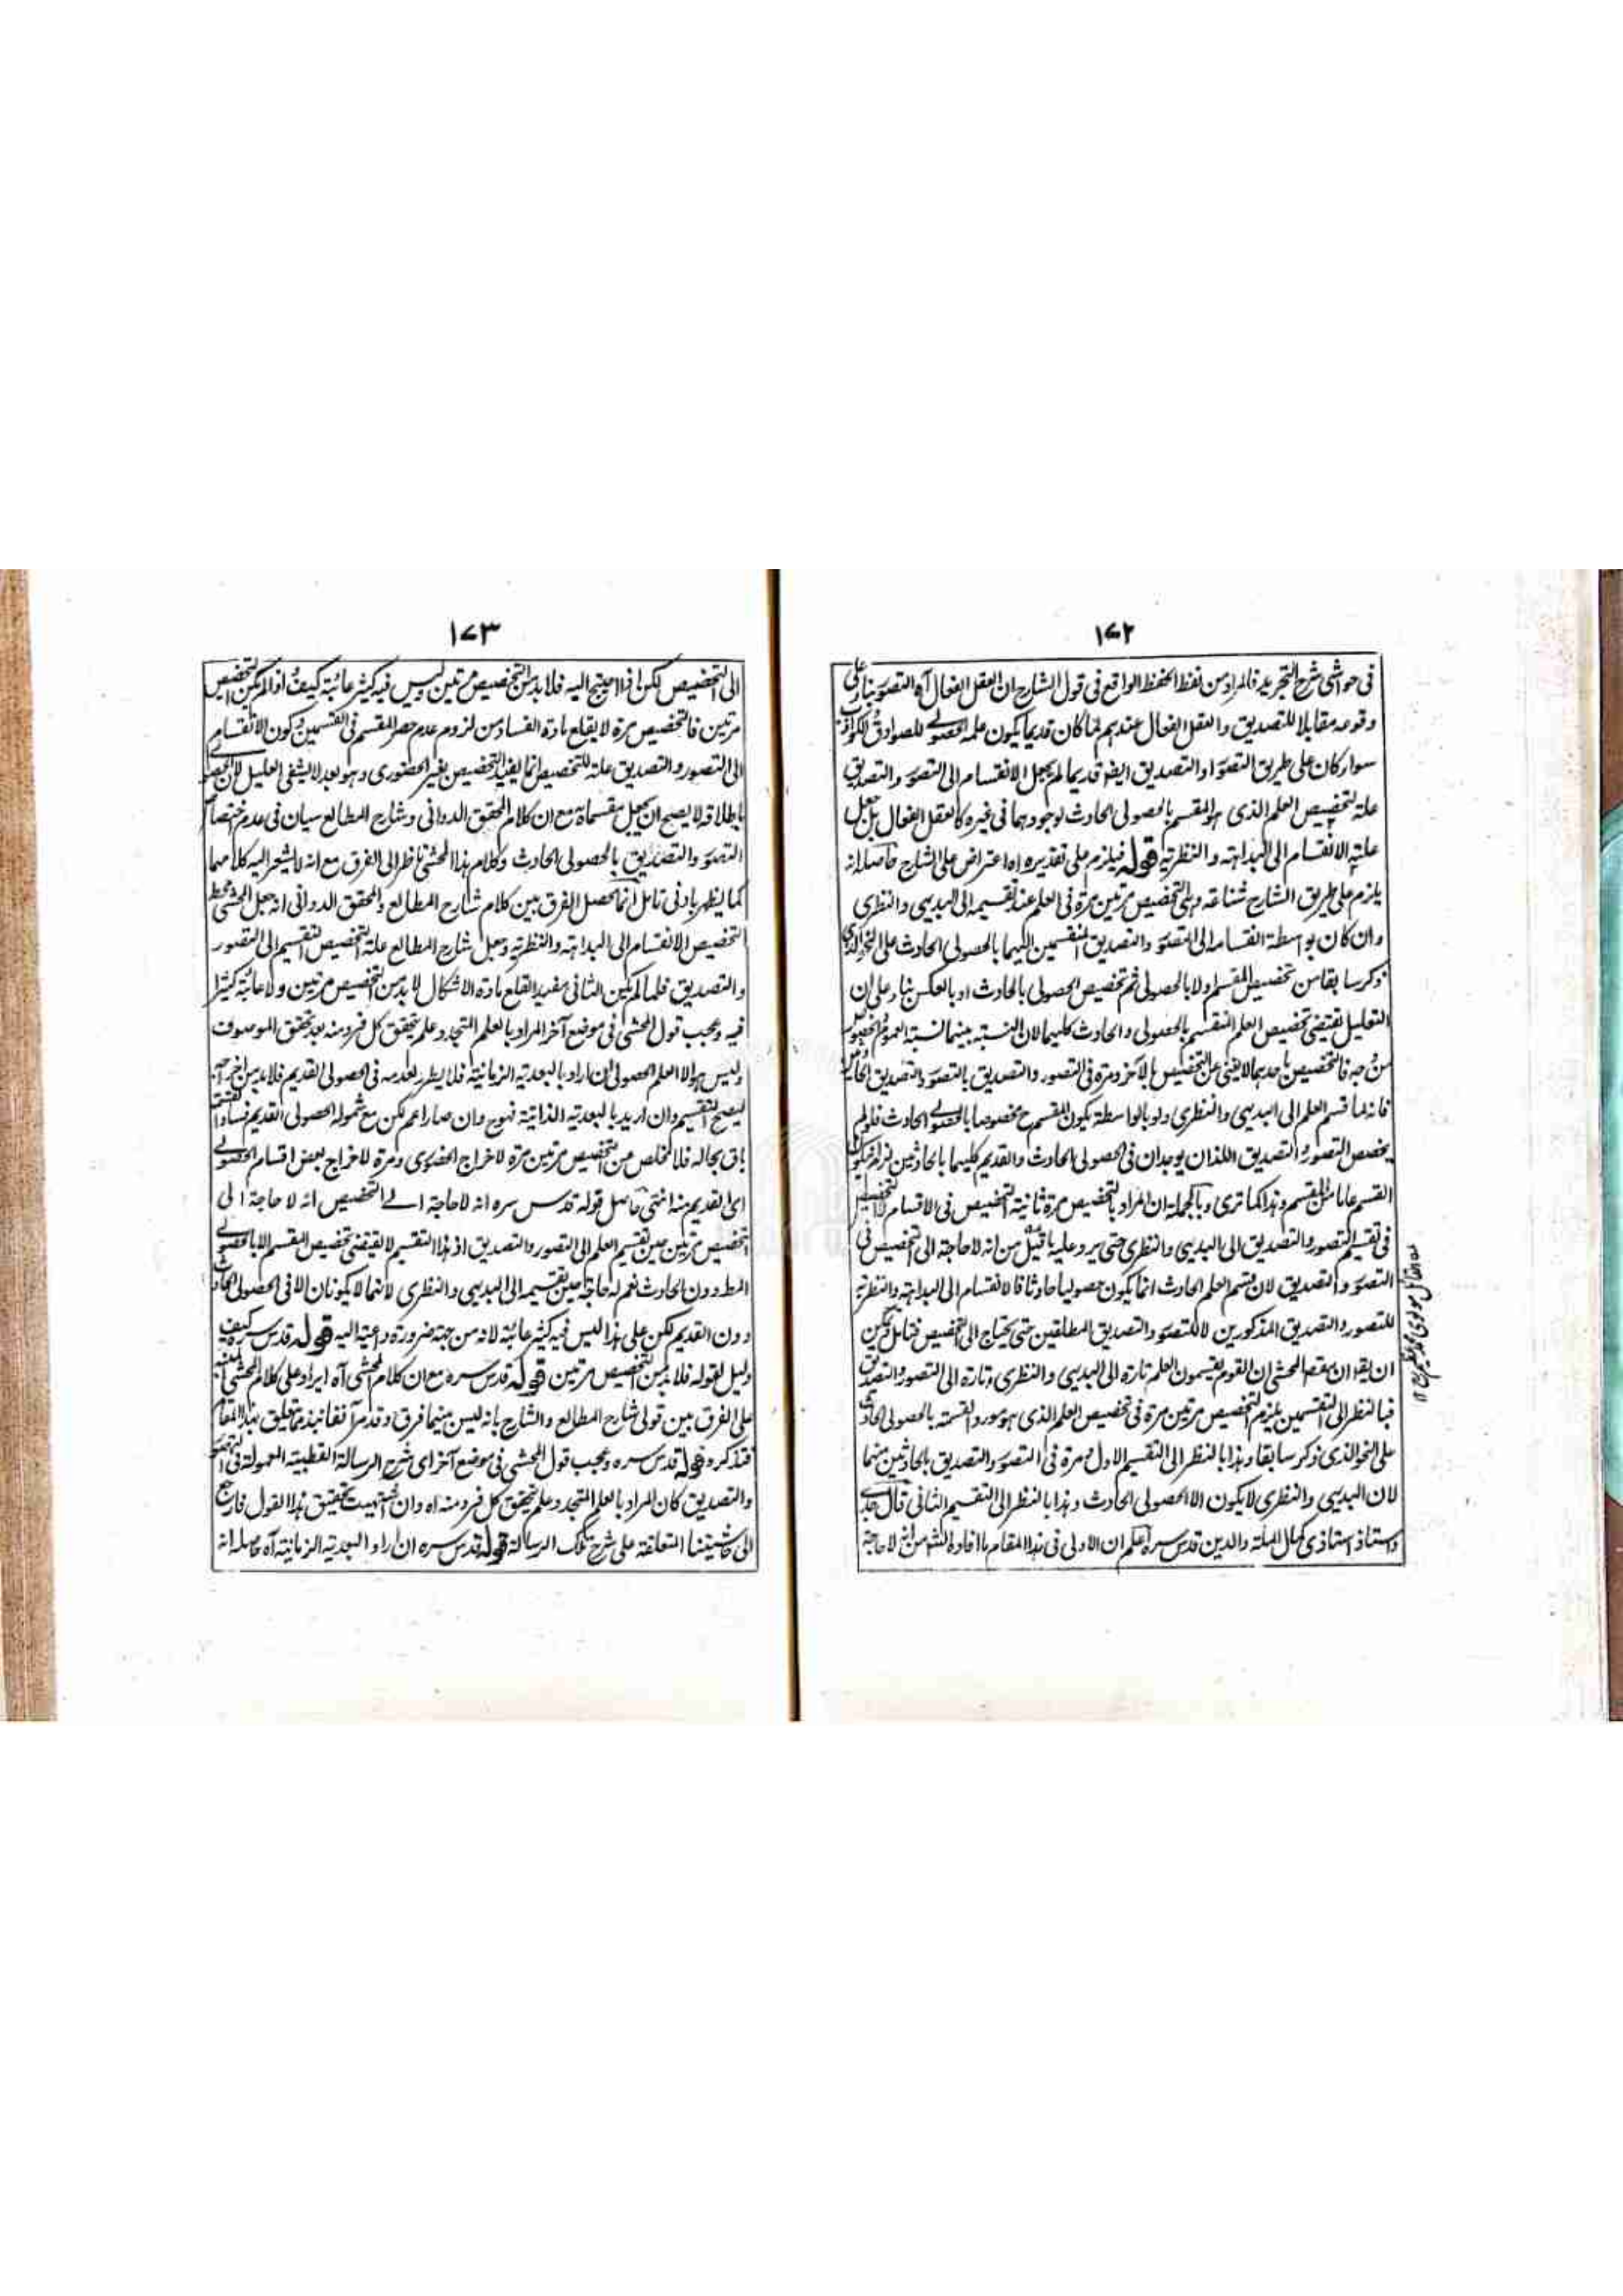 ١٧٢
فى حواشى شرح التجريد فالمراد من لفظ الحفظ الواقع فى قول الشارح ان العقل الفعال آه التصور بناء على
وقوعه مقابلا للتصديق والعقل الفعال عندهم لما كان قديما يكون علمه الحصولى للصوادق والكواذب
سواء كان على طريق التصور او التصديق ايضا قديما لم يجعل الانقسام الى التصور والتصديق
علة لتخصيص العلم الذى هو المقسم بالحصولى الحادث لوجودهما فى غيره كالعقل الفعال بل جعل
علته الانقسام الى البداهة والنظرية قوله فيلزم على تقديره اه اعتراض على الشارح حاصله انه
يلزم على طريق الشارح شناعة وهى التخصيص مرتين مرة فى العلم عند تقسيمه الى البديهى والنظرى
وان كان بواسطة انقسامه الى التصور والتصديق المنقسمين اليهما بالحصولى الحادث على النحو الذى
ذكر سابقا من تخصيص المقسم اولا بالحصولى ثم تخصيص الحصولى بالحادث او بالعكس بناء على ان
التعليل يقتضى تخصيص العلم المنقسم بالحصولى والحادث كليهما لان النسبة بينهما نسبة العموم والخصوص
من وجه فالتخصيص باحدهما لا يغنى عن التخصيص بالآخر ومرة فى التصور والتصديق بالتصور والتصديق الحادثين
فانه لما قسم العلم الى البديهى والنظرى ولو بالواسطة يكون المقسم ح مخصوصا بالحصولى الحادث فلو لم
يخصص التصور والتصديق اللذان يوجدان فى الحصولى الحادث والقديم كليهما بالحادثين لزم كون
القسم عاما من المقسم وهذا كما ترى وبالجملة ان المراد بالتخصيص مرة ثانية التخصيص فى الاقسام لا التخصيص
فى تقسيم التصور والتصديق الى البديهى والنظرى حتى يرد عليه ما قيل من انه لا حاجة الى التخصيص فى
التصور والتصديق لان قسم العلم الحادث انما يكون حصوليا حادثا فالانقسام الى البداهة والنظرية
للتصور والتصديق المذكورين لا للتصور والتصديق المطلقين حتى يحتاج الى التخصيص فتامل يمكن
ان يقال ان مقصد المحشى ان القوم يقسمون العلم تارة الى البديهى والنظرى وتارة الى التصور والتصديق
فبالنظر الى التقسيمين يلزم التخصيص مرتين مرة فى تخصيص العلم الذى هو مورد القسمة بالحصولى الحادث
على النحو الذى ذكر سابقا وهذا بالنظر الى التقسيم الاول ومرة فى التصور والتصديق بالحادثين منهما
لان البديهى والنظرى لا يكون الا الحصولى الحادث وهذا بالنظر الى التقسيم الثانى قال جدى
واستاذ استاذى كمال الملة والدين قدس سره اعلم ان الاولى فى هذا المقام ما افاده الشرح من انه لا حاجة
١٧٣
الى التخصيص لكن اذا احتيج اليه فلا بد من التخصيص مرتين وليس فيه كثير عائبة كيف واذا لم يكن التخصيص
مرتين فالتخصيص مرة لا يقلع مادة الفساد من لزوم عدم حصر المقسم فى القسمين وكون الانقسام
الى التصور والتصديق علة للتخصيص انما يفيد التخصيص بغير الحضورى وهو بعد لا يشفى العليل لان الحصولى
باطلاقه لا يصح ان يجعل مقسما آه مع ان كلام المحقق الدوانى وشارح المطالع سيان فى عدم اختصاص
التصور والتصديق بالحصولى الحادث وكلام هذا المحشى ناظر الى الفرق مع انه لا يشعر اليه كلامهما
كما يظهر بادنى تامل انما يحصل الفرق بين كلام شارح المطالع والمحقق الدوانى انه جعل المحشى محط
التخصيص الانقسام الى البداهة والنظرية وجعل شارح المطالع علة التخصيص لتقسيم الى التصور
والتصديق فلما لم يكن الثانى مفيد القلع مادة الاشكال لا بد من التخصيص مرتين ولا عائبة كثيرا
فيه وعجب قول المحشى فى موضع آخر المراد بالعلم المتجدد علم يتحقق كل فرد منه بعد تحقق الموصوف
وليس هو الا العلم الحصولى ان اراد بالبعدية الزمانية فلا يطرد لعدمه فى الحصولى القديم فلا بد من اخراجه
ليصح التقسيم وان اريد بالبعدية الذاتية فهو ح وان صار اعم لكن مع شموله الحصولى القديم فساد القسمة
باق بحاله فلا مخلص من التخصيص مرتين مرة لاخراج الحضورى ومرة لاخراج بعض اقسام الحصولى
اى القديم منه انتهى حاصل قوله قدس سره انه لا حاجة الى التخصيص انه لا حاجة الى
تخصيص مرتين حين تقسيم العلم الى التصور والتصديق اذ هذا التقسيم لا يقتضى تخصيص المقسم الا بالحصولى
المط دون الحادث نعم له حاجة حين تقسيمه الى البديهى والنظرى لانهما لا يكونان الا فى الحصولى الحادث
دون القديم لكن على هذا ليس فيه كثير عائبة لانه من جهة ضرورة داعية اليه قوله قدس سره كيف
دليل لقوله فلا بد من التخصيص مرتين قوله قدس سره مع ان كلام المحشى آه ايراد على كلام المحشى
على الفرق بين قولى شارح المطالع والشارح بانه ليس بينهما فرق وقد مر آنفا نبذ مما يتعلق بهذا المقام
فتذكره قوله قدس سره وعجب قول المحشى فى موضع آخر اى شرح الرسالة القطبية المعمولة فى التصور
والتصديق كان المراد بالعلم المتجدد علم يتحقق كل فرد منه اه وان اشتهيت تحقيق هذا القول فارجع
الى حاشيتنا المتعلقة على شرح تلك الرسالة قوله قدس سره ان اراد البعدية الزمانية آه حاصله انه